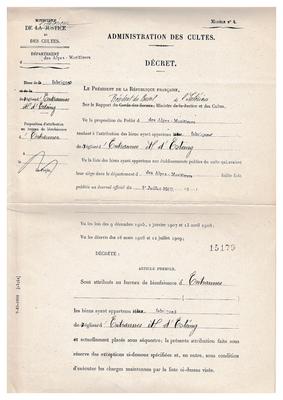 MINISTÈRE
DE LA JUSTICE
ET
DES CULTES.
DÉPARTEMENT
des Alpes-Maritimes
Biens de la fabrique
Entraunes
St d'Esteng
Proposition d'attribution
au bureau de bienfaisance
d'Entraunes
Modèle n° 4.
ADMINISTRATION DES CULTES.
DÉCRET.
LE PRÉSIDENT DE LA RÉPUBLIQUE FRANÇAISE,
Sur le Rapport du Ministre
Vu la proposition du Préfet d des Alpes-Maritimes
tendant à l'attribution des biens ayant appartenu fabrique
de Entraunes St d'Esteng
Vu la liste des biens ayant appartenu aux établissements publics du culte qui avaient
leur siège dans le département d des Alpes-Maritimes ladite liste
publiée au Journal officiel du Juillet
Vu les lois des 9 décembre 1905, 2 janvier 1907 et 13 avril 1908;
Vu les décrets des 16 mars 1906 et 12 juillet 1909;
15179
DÉCRÈTE :
ARTICLE PREMIER.
Sont attribués au bureau de bienfaisance d'Entraunes
les biens ayant appartenu fabrique
de Entraunes St d'Esteng
et actuellement placés sous séquestre; la présente attribution faite sous
réserve des exceptions ci-dessous spécifiées et, en outre, sous condition
d'exécuter les charges maintenues par la liste ci-dessus visée.